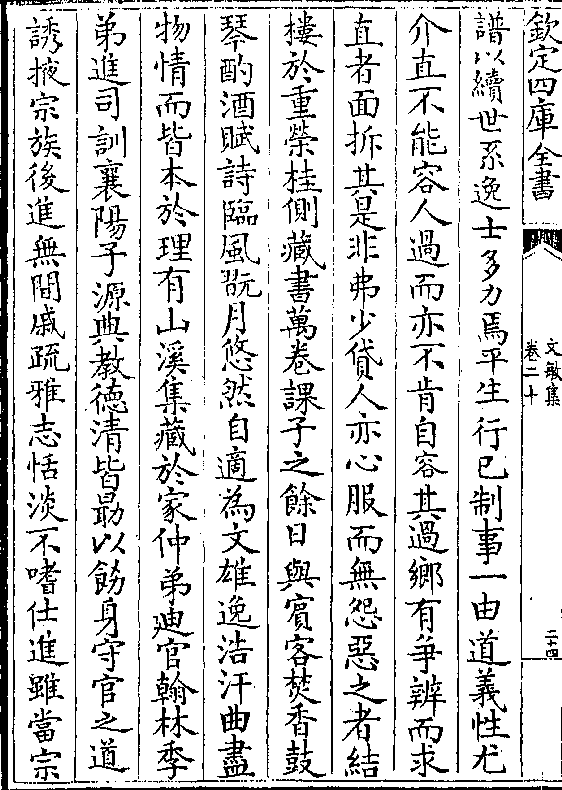 欽定四庫全書
文敏集
卷二十
二十四
譜以續世系逸士多力焉平生行已制事一由道義性尤
介直不能容人過而亦不肯自容其過鄉有爭辨而求
直者面拆其是非弗少貸人亦心服而無怨惡之者結
樓於重榮桂側藏書萬卷課子之餘日與賔客焚香鼓
琴酌酒賦詩臨風翫月悠然自適為文雄逸浩汗曲盡
物情而皆本於理有山溪集藏於家仲弟廸官翰林季
弟進司訓襄陽子源典教徳清皆勗以飭身守官之道
誘掖宗族後進無間戚疏雅志恬淡不嗜仕進雖當宗